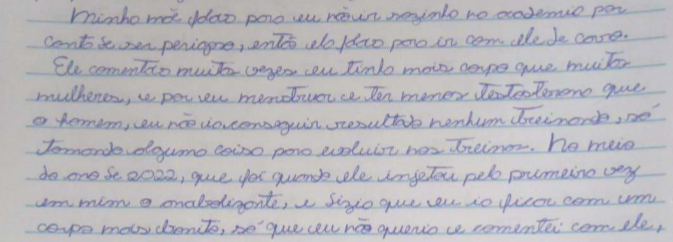 minha mãe falao para eu não ir sozinha na academia por
conta de ser perigoso, então ela falao para ir com ele de carro.
Ele comentão muitas vezes eu tinha mais corpo que muitas
mulheres, e por eu menstruar e ter menos testosterona que
o homem, eu não ia conseguir resultado nenhum treinando, só
tomando alguma coisa para evoluir nos treinos. No meio
do ano de 2022, que foi quando ele injetou pela primeira vez
em mim o anabolizante, e dizia que eu ia ficar com um
corpo mais bonito, só que eu não queria e comentei com ele,